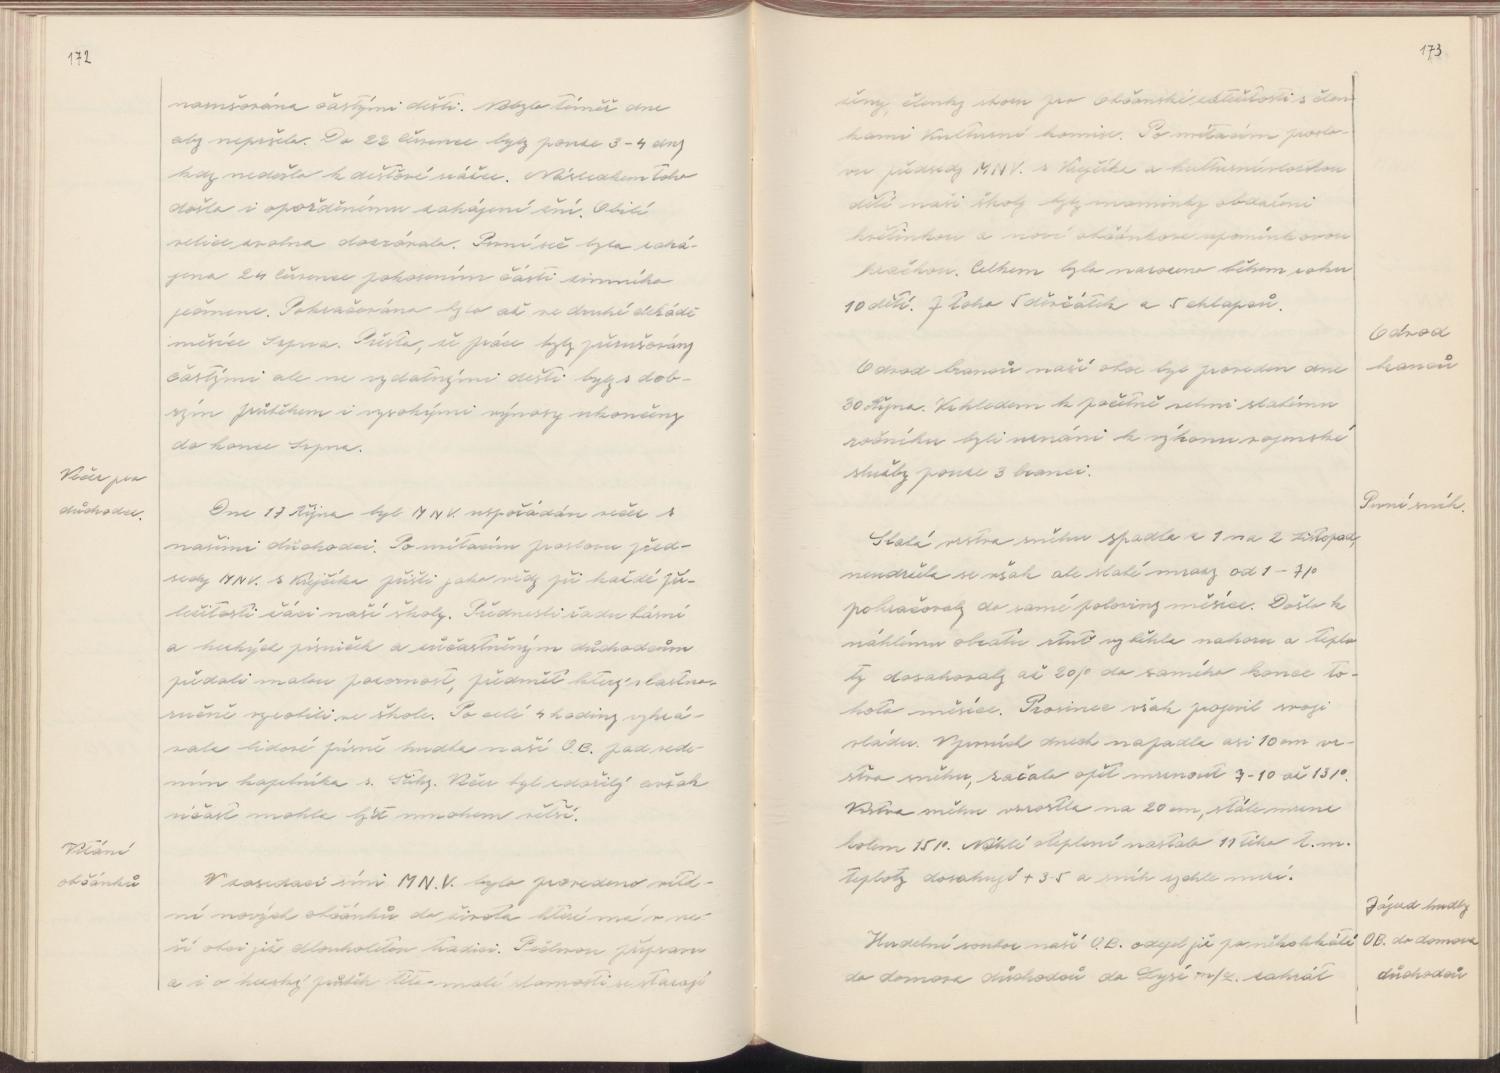 172
narušována častými dešti. Nebylo téměř dne
aby nepršelo. Do 22 července byly pouze 3-4 dny
kdy nedošlo k dešťové srážce. Následkem toho
došlo i opožděnému zahájení žní. Obilí
velice zvolna dozrávalo. První seč byla zahá-
jena 24 července pokosením části zimního
ječmene. Pokračováno bylo až ve druhé dekádě
měsíce srpna. Přesto, že práce byly přerušovány
častými ale ne vydatnými dešti byly s dob-
rým průběhem i vysokými výnosy ukončeny
do konce srpna.
Večer pro
důchodce.
Dne 17 října byl MNV. uspořádán večer s
našimi důchodci. Po uvítacím proslovu před-
sedy MNV. s Krejčíka přišli jako vždy při každé pří-
ležitosti žáci naší školy. Přednesli řadu básní
a hezkých písniček a zúčastněným důchodcům
předali malou pozornost, předmět který vlastno-
ručně vyrobili ve škole. Po celé 4 hodiny vyhrá-
vala lidové písně hudba naší O.B. pod vede-
ním kapelníka s. Be. Večer byl zdařilý avšak
účast mohla být mnohem větší.
Vítání
občánků
V zasedací síni MN.V. bylo provedeno vítá-
ní nových občánků do života které má v na-
ší obci již dlouholetou tradici. Pečlivou přípravu
a i o hezký průběh této malé slavnosti se starají
173
členky sboru pro občanské záležitosti s člen-
kami Kulturní komise. Po uvítacím proslo-
vu předsedy MNV. s Krejčíka a kulturní vložkou
dětí naší školy byly maminky obdařeni
květinkou a noví občánkové upomínkovou
hračkou. Celkem bylo narozeno během roku
10 dětí. Z toho 5 děvčátek a 5 chlapců.
Odvod
branců
Odvod branců naší obce byl proveden dne
30 října. Vzhledem k početně velmi slabému
ročníku byli uznáni k výkonu vojenské
služby pouze 3 branci.
První sníh.
Slabá vrstva sněhu spadla z 1 na 2 listopad,
neudržela se však ale slabé mrazy od 1-7/°
pokračovaly do samé poloviny měsíce. Došlo k
náhlému obratu rtuť vyběhla nahoru a teplo-
ty dosahovaly až 20/° do samého konce to-
hoto měsíce. Prosinec však projevil svoji
vládu. V prvních dnech napadla asi 10 cm vr-
stva sněhu, začalo opět mrznout 7-10 až 13/°.
Vrstva sněhu vzrostla na 20 cm, stále mrzne
kolem 15/°. Náhlé oteplení nastalo 17 téhož t.m.
teploty dosahují +3-5 a sníh rychle mizí.
Zájezd hudby
O.B. do domova
důchodců
Hudební soubor naší O.B. odejel již po několikáté
do domova důchodců do Lysé n/L. zahrát